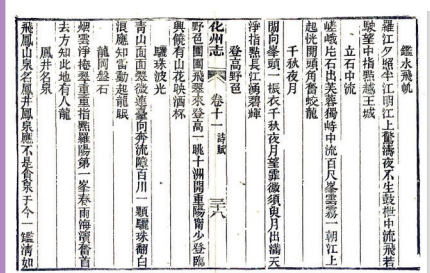 鑑水飛帆
羅江夕照半江明江上驚濤夜不生鼓枻中流飛若
駛望中指點越王城
立石中流
嵯峨片石出芙蓉獨峙中流百尺峯雲霧一朝江上
起恍開頭角奮蛟龍
千秋夜月
閣向峯頭一振衣千秋夜月望霏微須臾月出溝天
淨指點長江湧碧輝
登高野邑
化州志
卷十一
詩賦
三十八
野邑團團飛翠來登高一眺十洲開重陽嵛少登臨
興饒有山花映酒杯
驪珠波光
青山面面翠微連臺向奔流障百川一顆驪珠翻白
浪應知雷動起龍眠
龍岡盤石
烟雲淨掩翠重重指點羅陽第一峯春雨海濱奮首
去方知此地有人龍
鳳井名泉
飛鳳山泉名鳳井鳳泉應不是貪泉于今一鑑清如